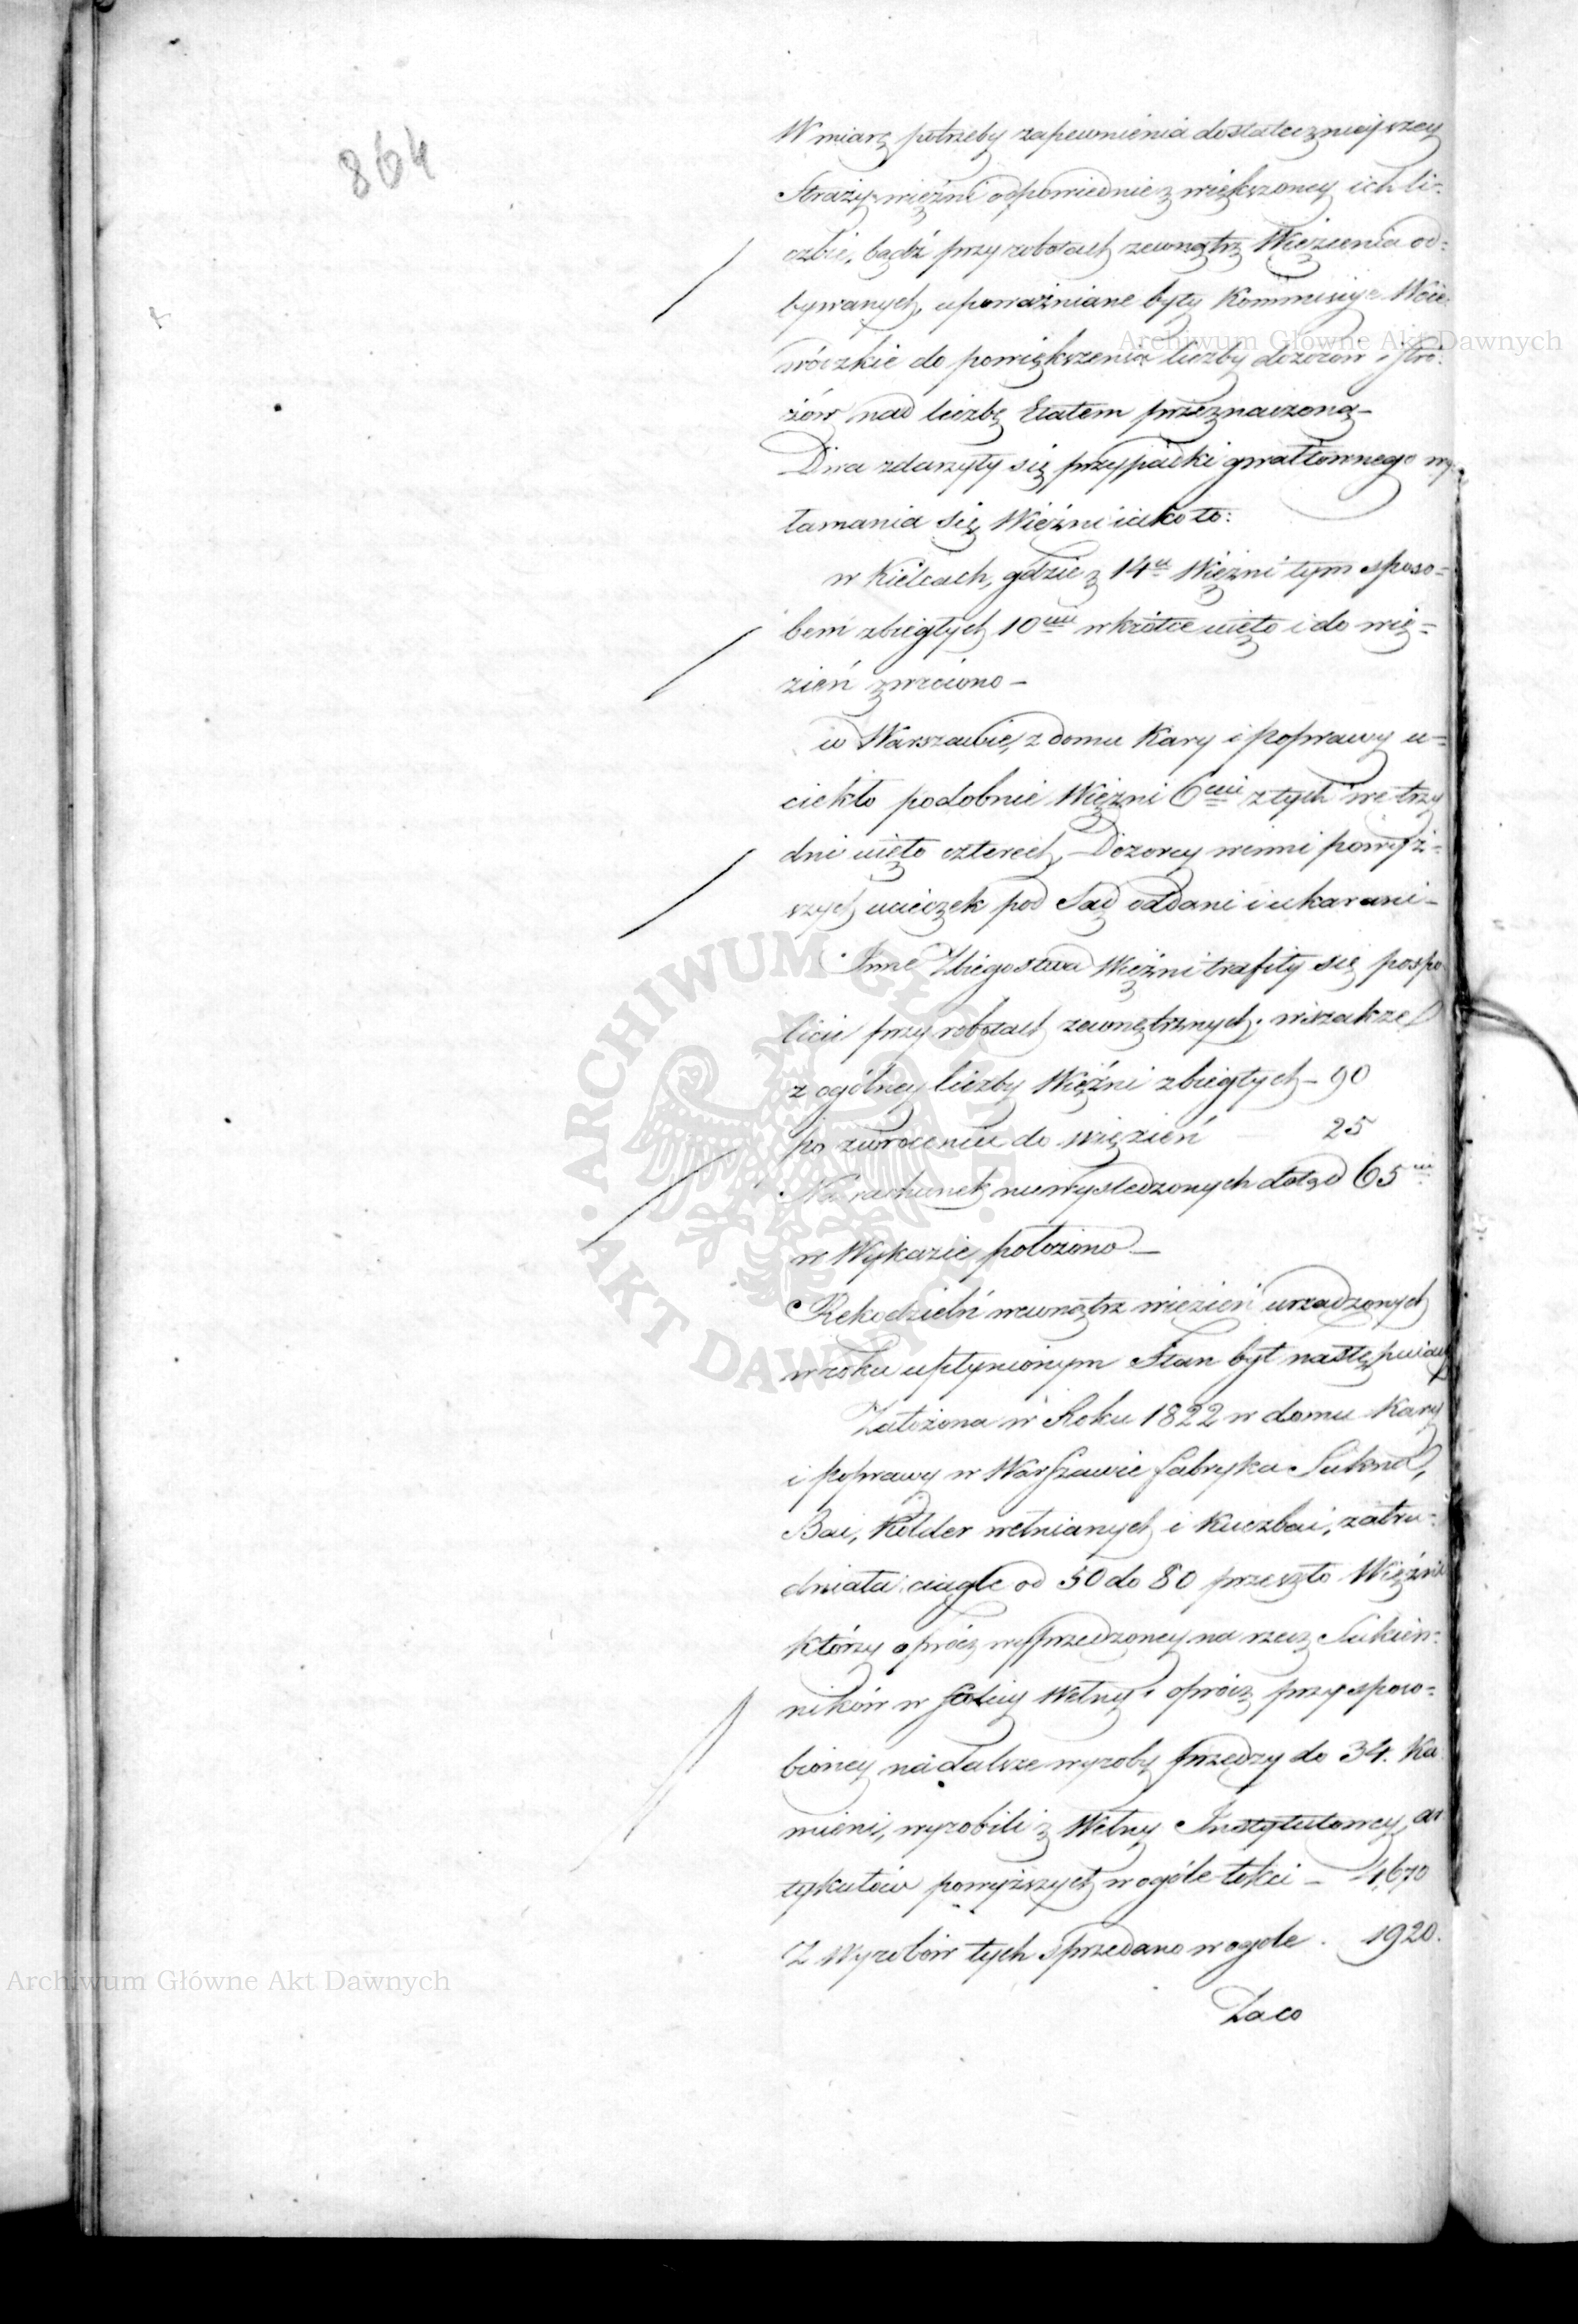 864
W miarę potrzeby zapewnienia dostatecznieyszey
Straży więźni odpowiednie zwiększoney ich li=
czbie, bądź przy robotach zewnątrz Więzienia od=
bywanych, upoważniane były Kommissye Woie=
wódzkie do powiększenia liczby dozorców i stró=
żów nad liczbę Etatem przeznaczoną —
Dwa zdarzyły się przypadki gwałtownego wy=
łamania się Więźni iako to:
w Kielcach, gdzie z 14u Więźni tym sposo=
bem zbiegłych 10ciu wkrótce uięto i do wię=
zień zwrócono —
w Warszawie, z domu Kary i Poprawy u=
ciekło podobnie Więźni 6ciu z tych we trzy
dni uięto czterech, Dozorcy winni powyż=
szych ucieczek pod Sąd oddani i ukarani —
Inne Zbiegostwa Więźni trafiły się pospo=
licie przy robotach zewnętrznych; wszakże
z ogólney liczby Więźni zbiegłych — 90
po zwróceniu do więzień 25
Na rachunek niewyśledzonych dotąd 65
w Wykazie położono —
Rekodzielń wewnątrz więzień urządzonych
w roku upłynionym Stan był następuiący
Założona w Roku 1822 w domu Kary
i Poprawy w Warszawie fabryka Sukna,
Bai, Kołder wełnianych i Kuczbai, zatru=
dniała ciągle od 50 do 80 przeszło Więźni
którzy oprócz wyprzedzoney na rzecz Sukien=
ników w Wełny, oprócz przysposo=
bioney na dalsze wyroby przędzy do 34. Ka
mieni, wyrobili z Wełny Instytutowey, ar
tykułów powyższych w ogóle łokci — 4,670
Z wyrobów tych sprzedano w ogóle . 1920.
Za co
Archiwum Główne Akt Dawnych
Archiwum Główne Akt Dawnych
ARCHIWUM GŁÓWNE
AKT DAWNYCH